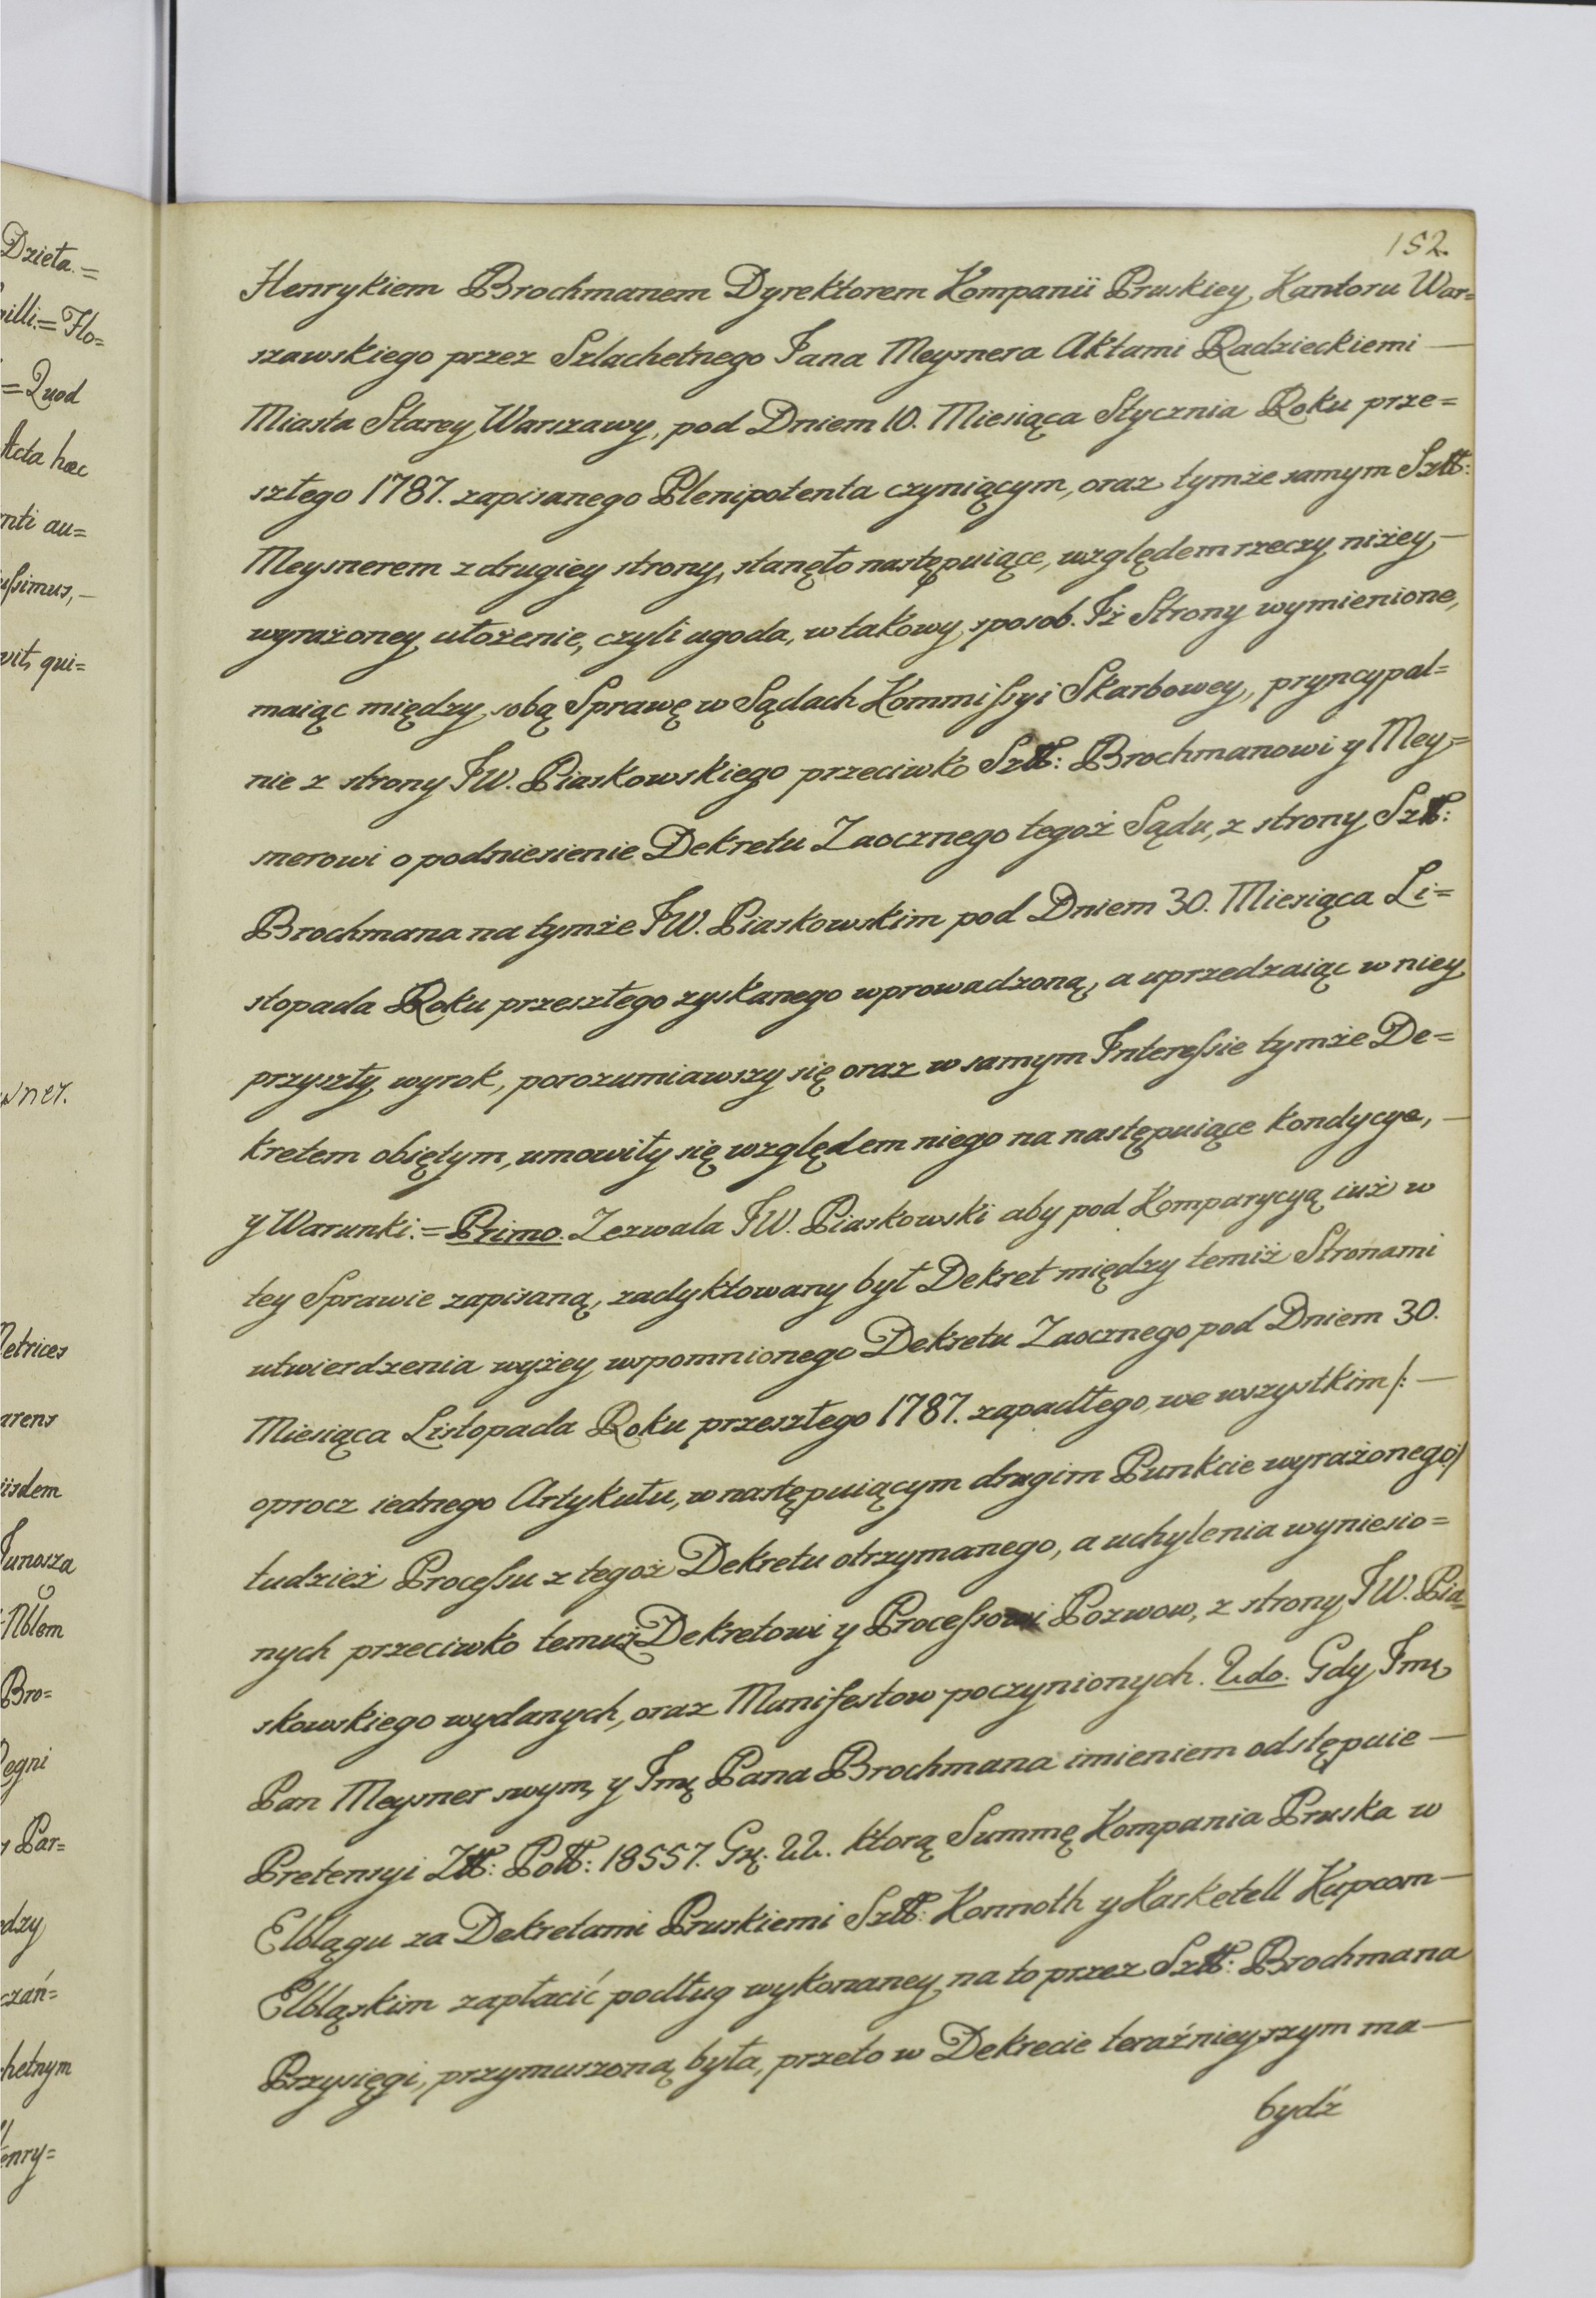 152.
Henrykiem Brochmanem Dyrektorem Kompanii Pruskiey, Kantoru War=
szawskiego przez Szlachetnego Jana Meysnera Aktami Radzieckiemi —
Miasta Starey Warszawy, pod Dniem 10. Miesiąca Stycznia Roku prze=
szłego 1787. zapisanego Plenipotenta czyniącym, oraz tymże samym Szltt:
Meysnerem z drugiey strony, stanęło następuiące, względem rzeczy niżey —
wyrażoney ułożenie, czyli ugoda, w takowy sposob. Iż Strony wymienione,
maiąc między sobą Sprawę w Sądach Kommißyi Skarbowey, pryncypal=
nie z strony JW. Piaskowskiego przeciwko Szltt: Brochmanowi y Mey=
snerowi o podniesienie Dekretu Zaocznego tegoż Sądu, z strony Szltt:
Brochmana na tymże JW. Piaskowskim pod Dniem 30. Miesiąca Li=
stopada Roku przeszłego zyskanego wprowadzoną, a uprzedzaiąc w niey
przyszły wyrok, porozumiawszy się oraz w samym Intereßie tymże De=
kretem obiętym, umowiły się względem niego na następuiące kondycye, —
y Warunki: = Primo. Zezwala JW. Piaskowski aby pod Komparycyą iuż w
tey Sprawie zapisaną, zadyktowany był Dekret między temiż Stronami
utwierdzenia wyżey wspomnionego Dekretu Zaocznego pod Dniem 30.
Miesiąca Listopada Roku przeszłego 1787. zapadłego, we wszystkim /: —
oprocz iednego Artykułu, w następuiącym drugim Punkcie wyrażonego:/
tudzież Proceßu z tegoż Dekretu otrzymanego, a uchylenia wyniesio=
nych przeciwko temuż Dekretowi y Proceßowi Pozwow, z strony JW. Pia=
skowskiego wydanych, oraz Manifestow poczynionych. 2do. Gdy Jmę
Pan Meysner swym, y Jmę Pana Brochmana imieniem odstępuie —
Pretensyi Złtt: Poltt: 18557. Gę. 22. ktorą Summę Kompania Pruska w
Elblągu za Dekretami Pruskiemi Szltt: Konnoth y Kasketell Kupcom —
Elbląskim zapłacić podług wykonaney na to przez Szltt: Brochmana
Przysięgi, przymuszoną była, przeto w Dekrecie teraźnieyszym ma —
bydź
Dzieła. =
illi. = Flo=
= Quod
Acta hæc
nti au=
ußimus, —
vit, qui=
wner.
Metrices
arens
iisdem
Junosza
Nblem
Bro=
Regni
Par=
dzy
czań=
hetnym
enry=